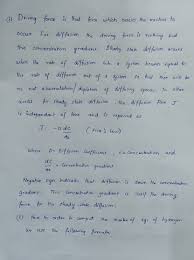 ① Driving force is that force which causes the reaction to
occur. For diffusion the driving force is nothing but
the concentration gradient. Steady state diffusion occurs
when the rate of diffusion into a system is equal to
the rate of diffusion out of a system so that there will be
no net accumulation/depletion of diffusing species. In other
words for steady state diffusion, the diffusion flux J
is independent of time and is expressed as
J = -D dc/dx (Fick's law)
where D = Diffusion coefficient, c = concentration and
dc/dx = concentration gradient
Negative sign indicates that diffusion is down the concentration
gradient. This concentration gradient is itself the driving
force for the steady state diffusion.
Now in order to compute the number of kg of hydrogen
we use the following formula: